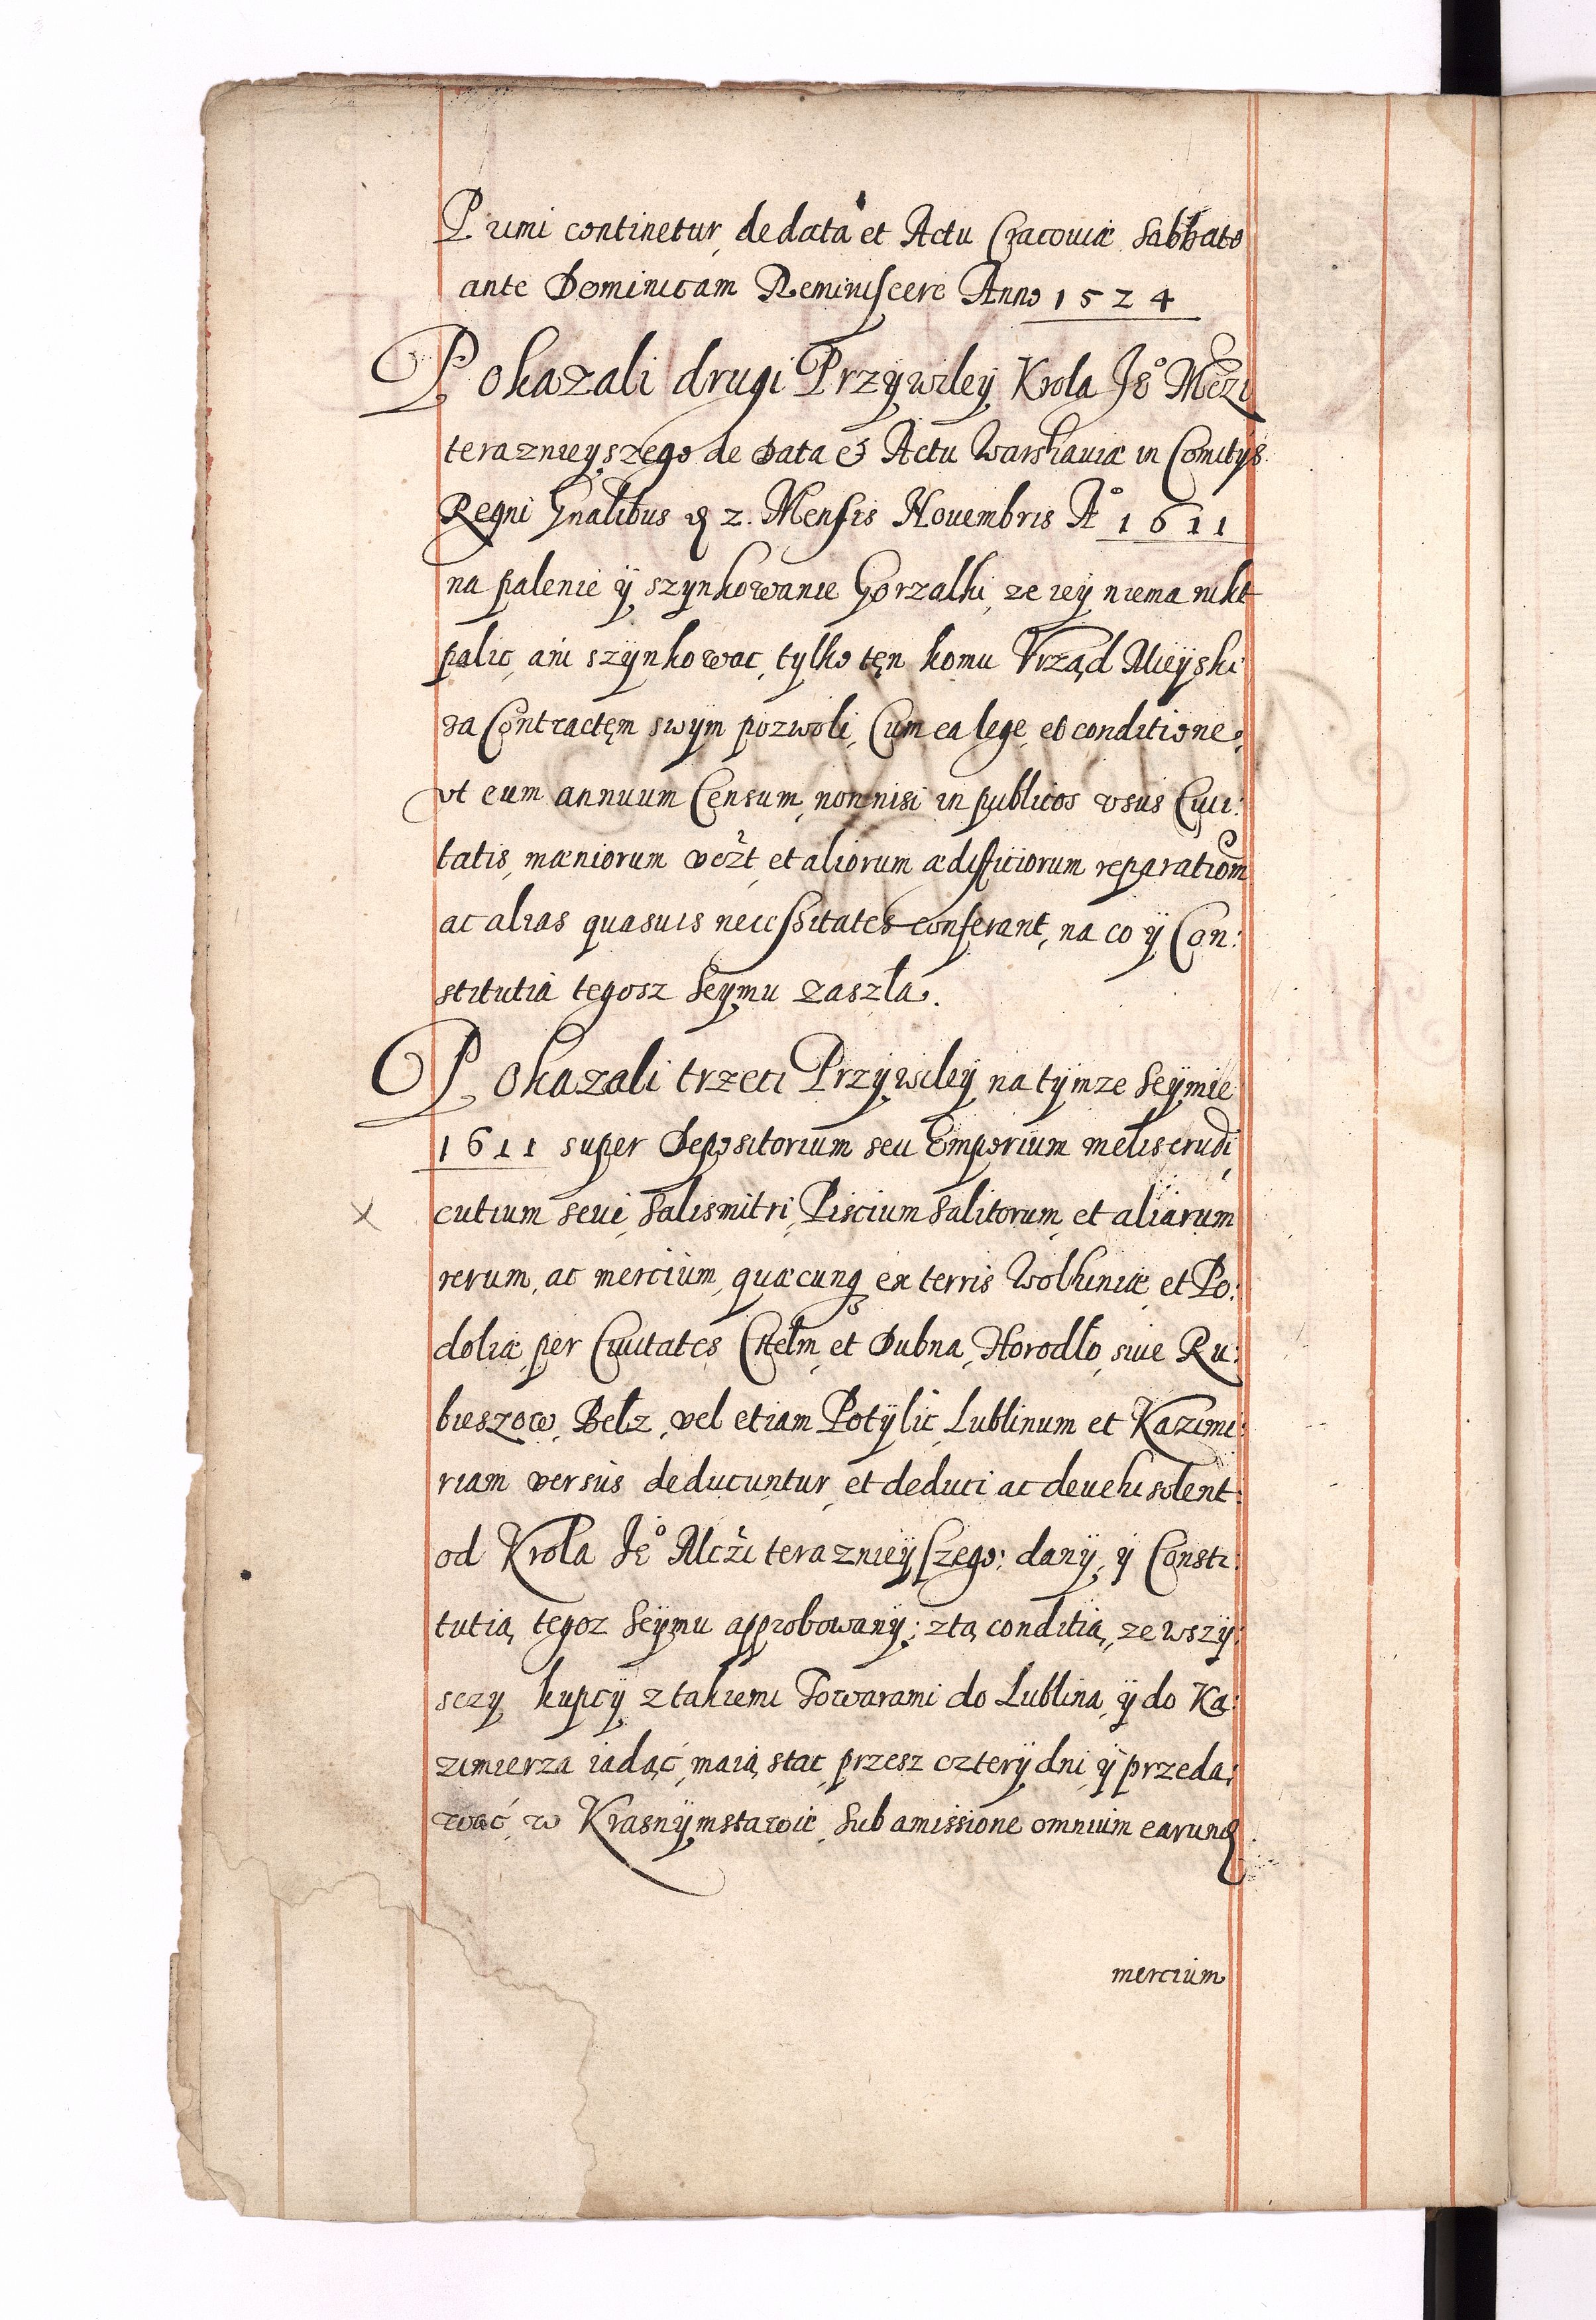 Pumi continetur, de data et Actu Cracouiæ Sabbato
ante Dominicam Reminiscere Anno 1524
Pokazali drugi Przÿwileÿ Krola Je° Mczi
teraznieyszego de Data & Actu Warshauiæ in Comitÿs
Regni Gnalibus d 2. Mensis Nouembris A° 1611
na palenie ÿ szÿnkowanie Gorzalki, ze ieÿ niema nikt
palic, ani szÿnkowac, tylko tęn komu Vrząd Mieÿski
za Contractęm swÿm pozwoli, Cum ea lege, et conditione,
vt eum annuum Censum, non nisi in publicos vsus Ciui:
tatis, mæniorum vczt, et aliorum ædificiorum reparatiom
ac alias quasuis necessitates conferant, na co ÿ Con:
stitutia tegosz Seymu zaszła.
Pokazali trzeci Przÿwileÿ na tÿmze Seÿmie
1611 super Depositorium seu Emporium melis crudi,
cutium seui, Salismitri, Piscium Salitorum, et aliarum
rerum, ac mercium, quæcunq ex terris Wolhiniæ, et Po:
doliæ, per Ciuitates Chełm, et Dubna, Horodło, siue Ru:
bieszow, Bełz, vel etiam Potÿlic, Lublinum et Kazimi:
riam versus deducuntur, et deduci ac deuehi solent:
od Krola Je° Mczi teraznieÿszego: danÿ, ÿ Consti:
tutią tegoz Seÿmu approbowanÿ; z tą conditią, ze wszÿ:
sczy kupcÿ z takiemi Towarami do Lublina, ÿ do Ka:
zimierza iadąć, maią stac przesz czterÿ dni ÿ przeda:
wać w Krasnÿmstawie, Sub amissione omnium earund
mercium